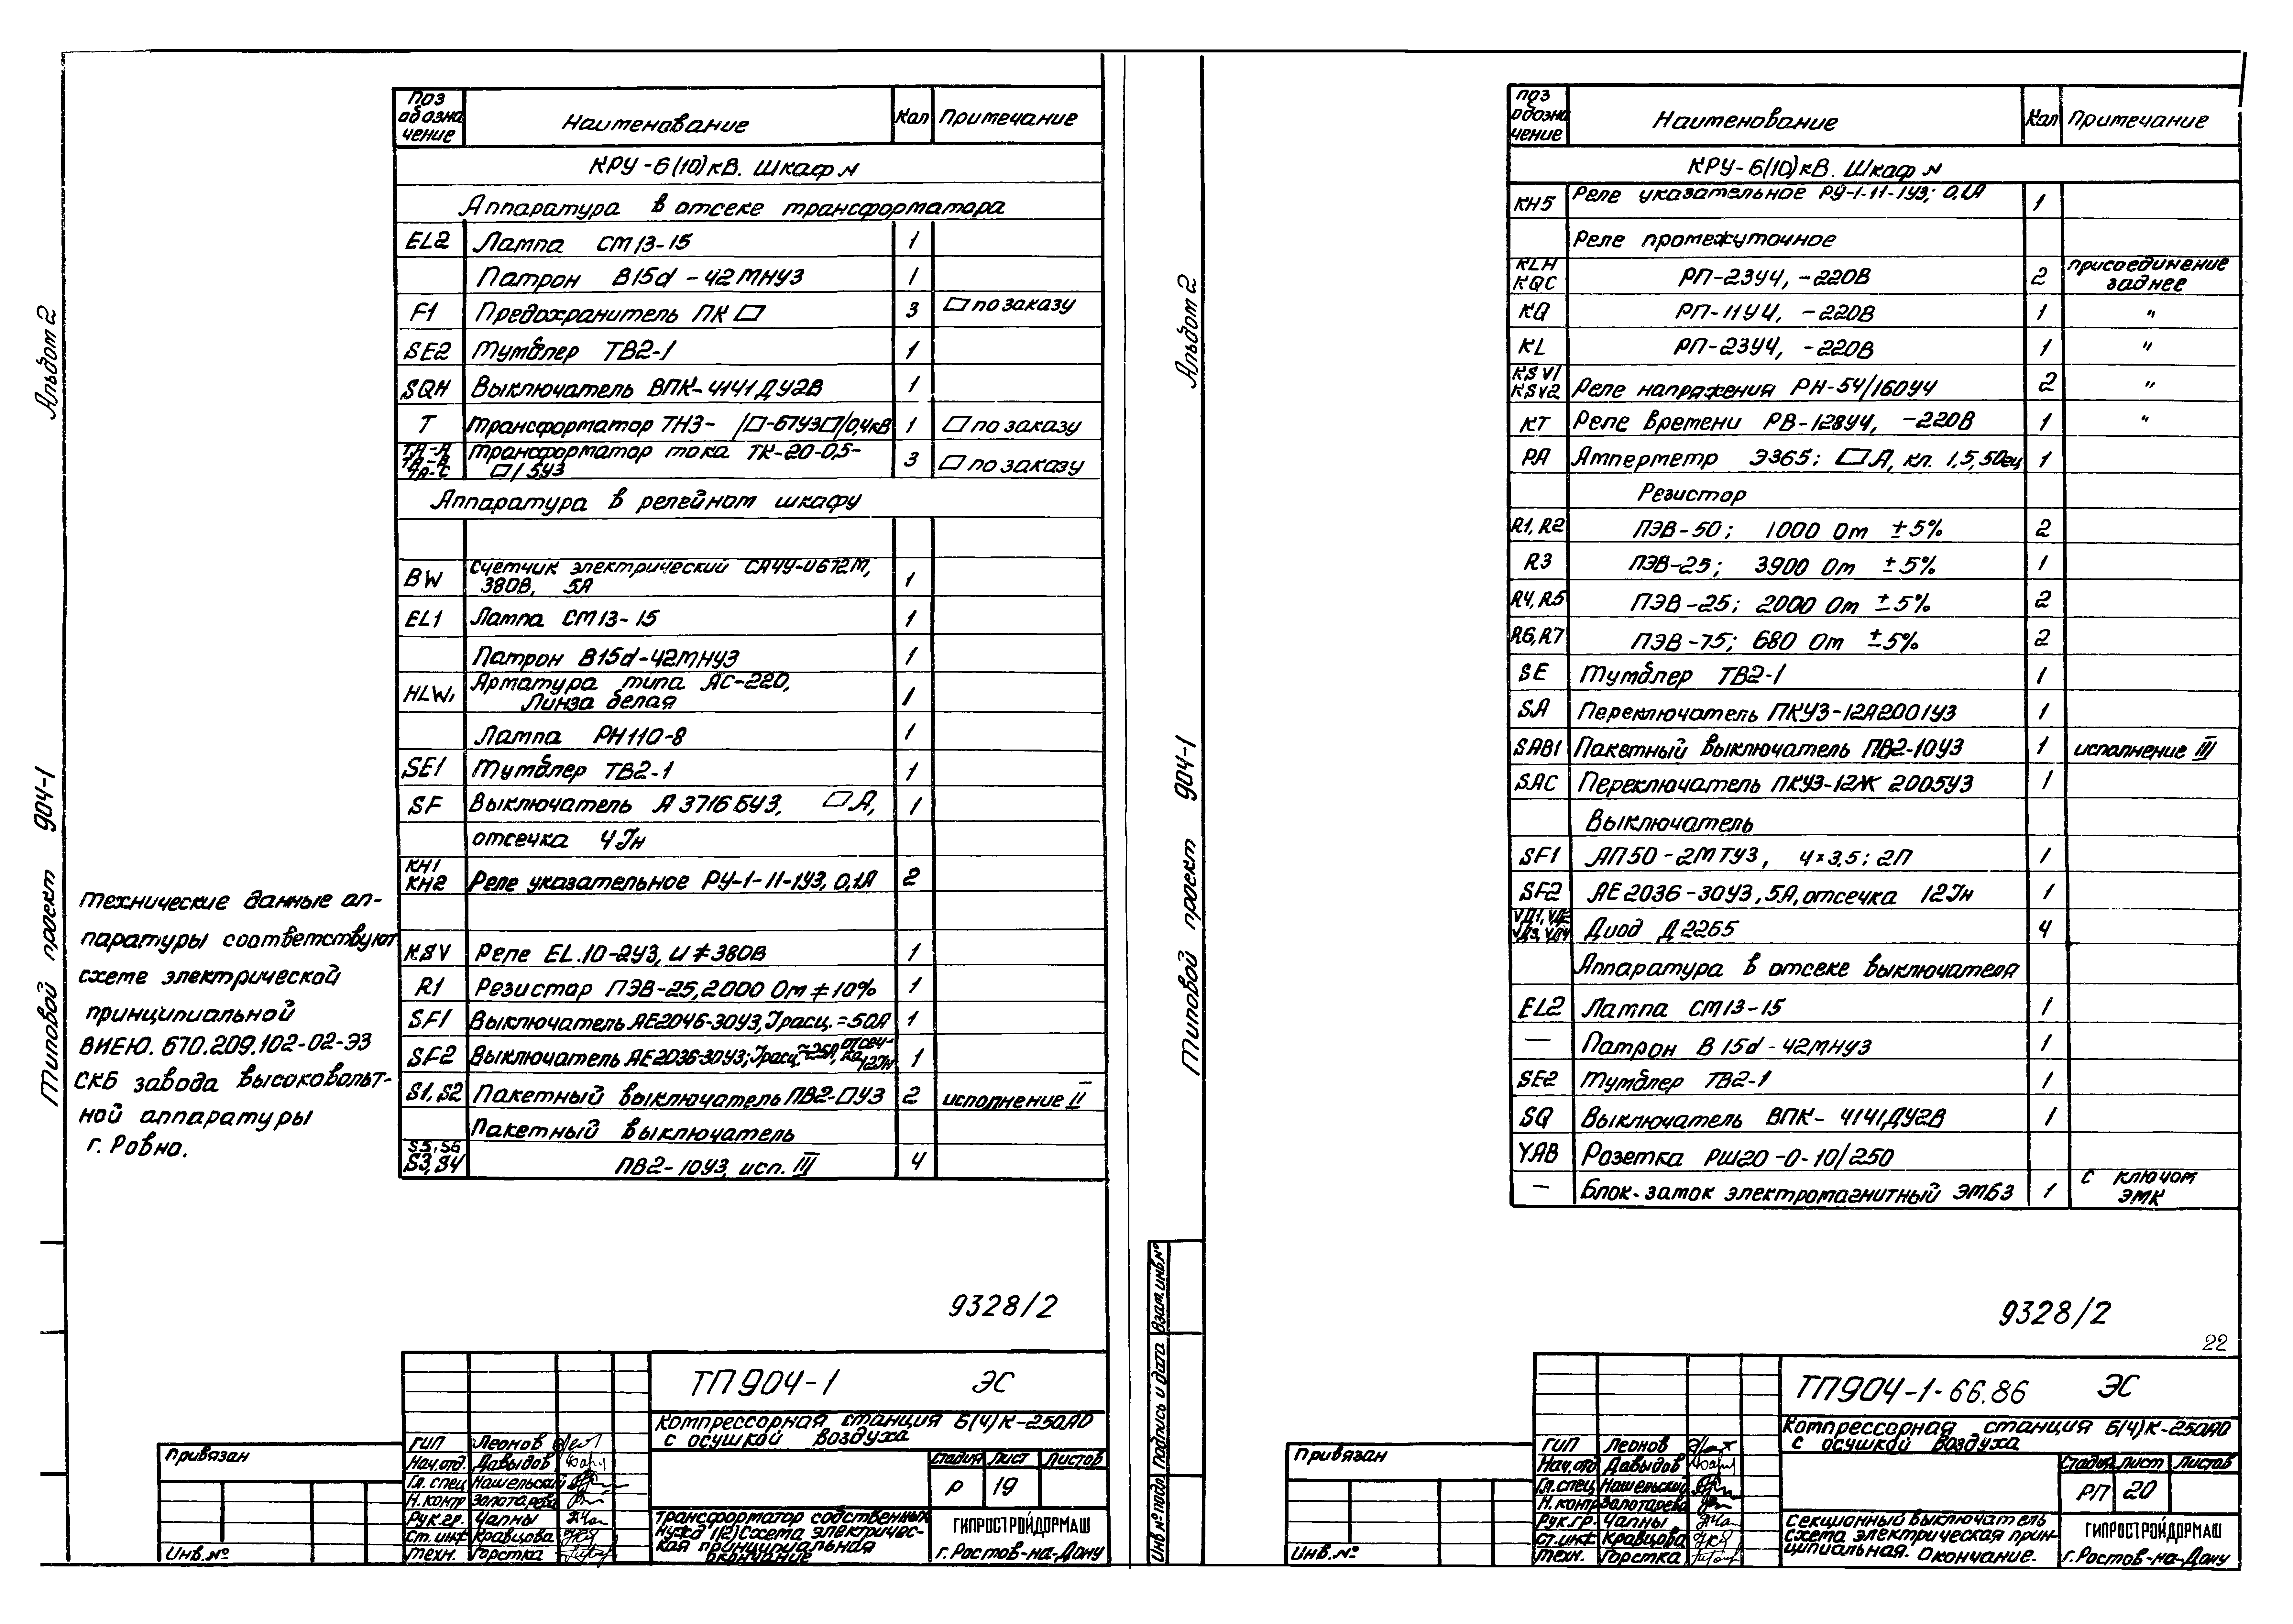 Альбом 2
Типовой проект 904-1
Технические данные ап-
паратуры соответствуют
схеме электрической
принципиальной
ВИЕЮ. 670.209.102-02-ЭЗ
СКБ завода высоковольт-
ной аппаратуры
г. Ровно.
Поз обозна чение Наименование Кол Примечание
КРУ-6(10)кВ. Шкаф N
Аппаратура в отсеке трансформатора
EL2 Лампа СМ13-15 1
Патрон В15d-42МНУЗ 1
F1 Предохранитель ПК □ 3 □ по заказу
SE2 Тумблер ТВ2-1 1
SQH Выключатель ВПК-4141ДУ2В 1
T Трансформатор ТНЗ- /□-67УЗ□/0,4кВ 1 □ по заказу
TA-A TA-B TA-C Трансформатор тока ТК-20-0,5-□/5УЗ 3 □ по заказу
Аппаратура в релейном шкафу
BW Счетчик электрический СА4У-И672М, 380В, 5А 1
EL1 Лампа СМ13-15 1
Патрон В15d-42МНУЗ 1
HLW, Арматура типа АС-220, Линза белая 1
Лампа РН110-8 1
SE1 Тумблер ТВ2-1 1
SF Выключатель А3716БУЗ, □А, 1
отсечка 4Iн
KH1 KH2 Реле указательное РУ-1-11-1УЗ, 0,1А 2
KSV Реле EL.10-2УЗ, U≠380В 1
R1 Резистор ПЭВ-25, 2000 Ом ≠10% 1
SF1 Выключатель АЕ2046-30УЗ, Iрасц.=50А 1
SF2 Выключатель АЕ2036-30УЗ; Iрасц.≈25А, отсеч-ка 12Iн 1
S1, S2 Пакетный выключатель ПВ2-□УЗ 2 исполнение II
Пакетный выключатель
S5, S6 S3, S4 ПВ2-10УЗ, исп. III 4
9328/2
ТП904-1 ЭС
Компрессорная станция 6(4)К-250АО
с осушкой воздуха
Привязан
Инв.№
ГИП Леонов
Нач.отд. Давыдов
Гл.спец Нашельский
Н.контр Золотарева
Рук.гр. Чапны
Ст.инж Кравцова
Техн. Горстка
Стадия Лист Листов
Р 19
Трансформатор собственных
нужд 1(2) Схема электричес-
кая принципиальная
окончание
ГИПРОСТРОЙДОРМАШ
г.Ростов-на-Дону
Альбом 2
Типовой проект 904-1
Инв№подл. Подпись и дата Взам.инв.№
Поз обозна чение Наименование Кол Примечание
КРУ-6(10)кВ. Шкаф N
KH5 Реле указательное РУ-1-11-1УЗ; 0,1А 1
Реле промежуточное
KLH KQC РП-23У4, -220В 2 присоединение заднее
KQ РП-11У4, -220В 1 "
KL РП-23У4, -220В 1 "
KSV1 KSV2 Реле напряжения РН-54/160У4 2 "
KT Реле времени РВ-128У4, -220В 1 "
PA Амперметр Э365; □А, кл. 1,5, 50гц 1
Резистор
R1, R2 ПЭВ-50; 1000 Ом ±5% 2
R3 ПЭВ-25; 3900 Ом ±5% 1
R4, R5 ПЭВ-25; 2000 Ом ±5% 2
R6, R7 ПЭВ-75; 680 Ом ±5% 2
SE Тумблер ТВ2-1 1
SA Переключатель ПКУЗ-12А2001УЗ 1
SAB1 Пакетный выключатель ПВ2-10УЗ 1 исполнение III
SAC Переключатель ПКУЗ-12Ж 2005УЗ 1
Выключатель
SF1 АП50-2МТУЗ, 4×3,5; 2П 1
SF2 АЕ2036-30УЗ, 5А, отсечка 12Iн 1
VД1, VД2 VД3, VД4 Диод Д226Б 4
Аппаратура в отсеке выключателя
EL2 Лампа СМ13-15 1
— Патрон В15d-42МНУЗ 1
SE2 Тумблер ТВ2-1 1
SQ Выключатель ВПК-4141ДУ2В 1
YAB Розетка РШ20-0-10/250
— Блок-замок электромагнитный ЭМБЗ 1 с ключом ЭМК
9328/2
22
ТП904-1-66.86 ЭС
Компрессорная станция 6(4)К-250АО
с осушкой воздуха
Привязан
Инв.№
ГИП Леонов
Нач.отд Давыдов
Гл.спец Нашельский
Н.контр Золотарева
Рук.гр. Чапны
Ст.инж Кравцова
Техн. Горстка
Стадия Лист Листов
РП 20
Секционный выключатель
схема электрическая прин-
ципиальная. Окончание.
ГИПРОСТРОЙДОРМАШ
г.Ростов-на-Дону